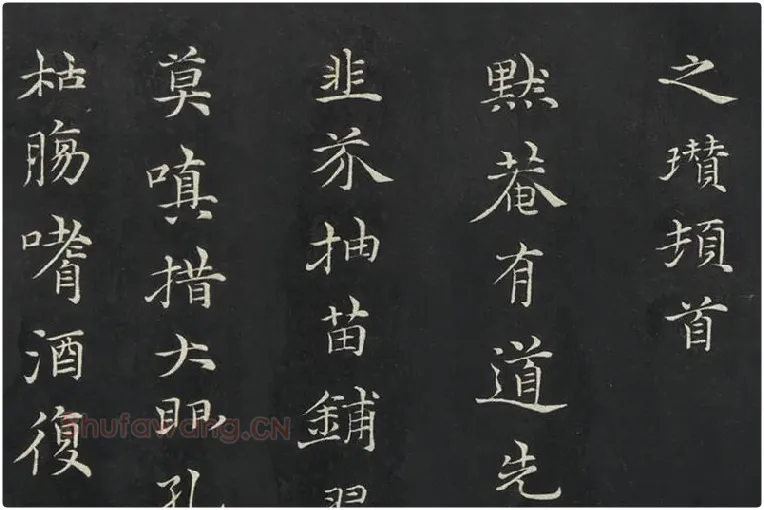 之瓚頓首
默菴有道先
韭芥抽苗鋪翠
莫嗔措大眼孔
枯腸嗜酒復
Shufawang.CN